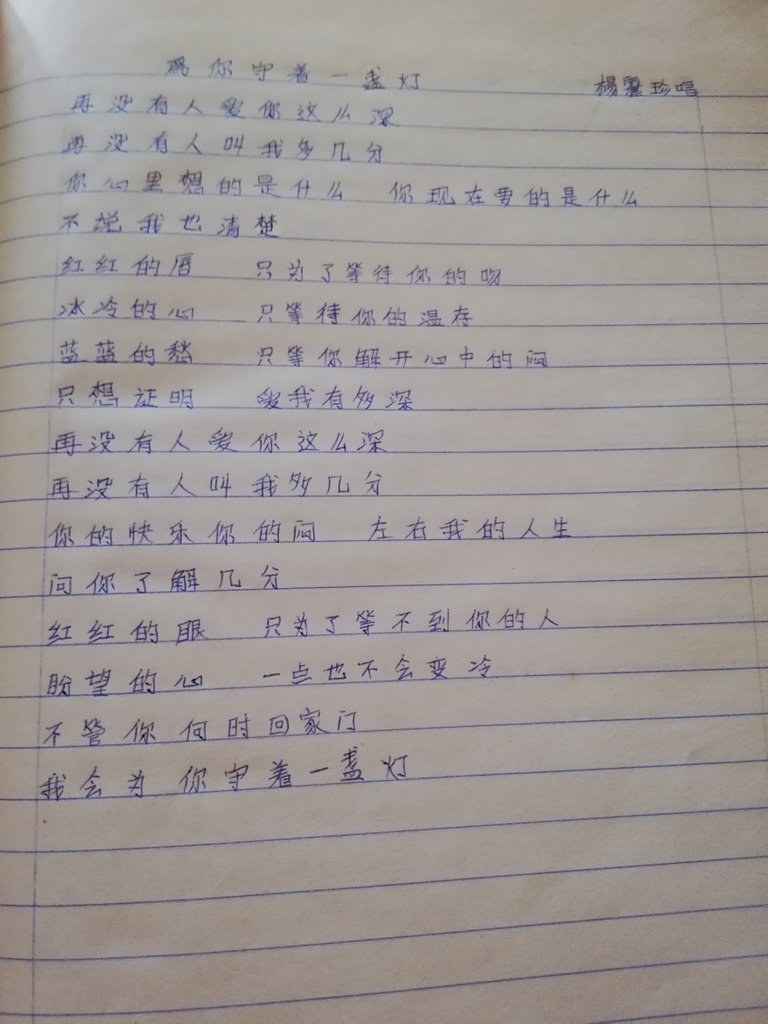 為你守着一盏灯 楊麗珍唱
再没有人爱你这么深
再没有人叫我多几分
你心里想的是什么 你现在要的是什么
不说我也清楚
红红的唇 只为了等待你的吻
冰冷的心 只等待你的温存
蓝蓝的愁 只等你解开心中的闷
只想证明 爱我有多深
再没有人爱你这么深
再没有人叫我多几分
你的快乐你的闷 左右我的人生
问你了解几分
红红的眼 只为了等不到你的人
盼望的心 一点也不会变冷
不管你何时回家门
我会为你守着一盏灯